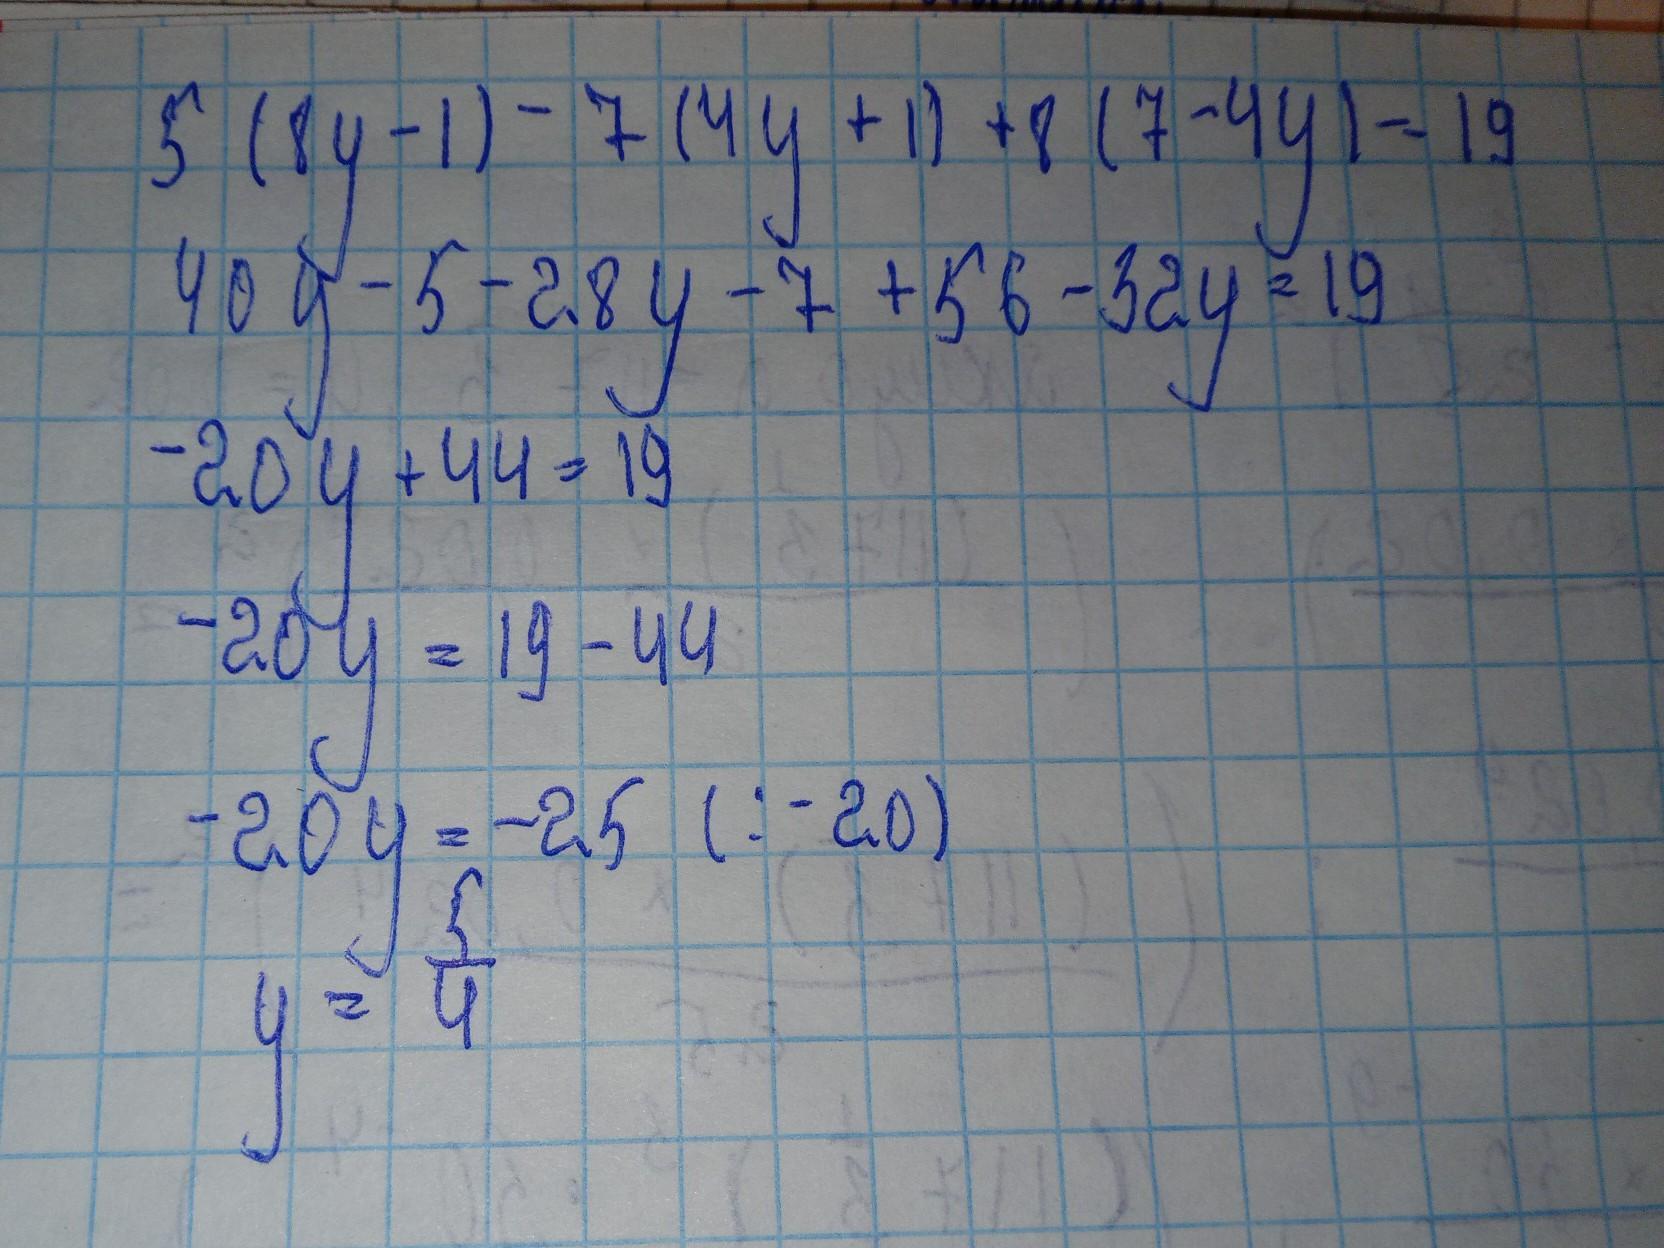 5 (8y - 1) - 7 (4y + 1) + 8 (7 - 4y) = 19
40y - 5 - 28y - 7 + 56 - 32y = 19
-20y + 44 = 19
-20y = 19 - 44
-20y = -25 (: -20)
y = 5/4